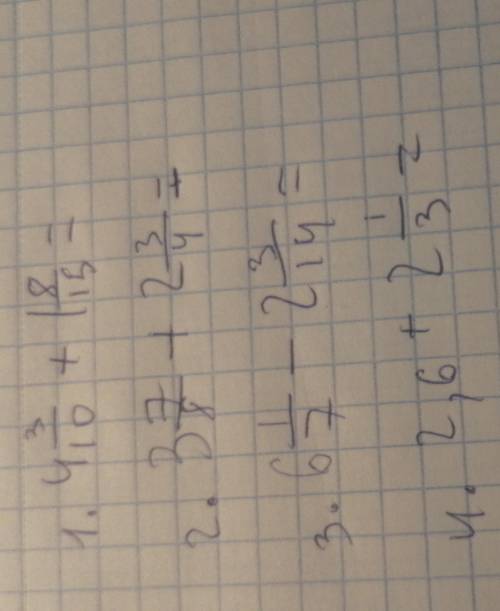 1. 4 3/10 + 1 8/15 =
2. 3 7/8 + 2 3/4 =
3. 6 1/7 - 2 3/14 =
4. 2,6 + 2 1/3 =